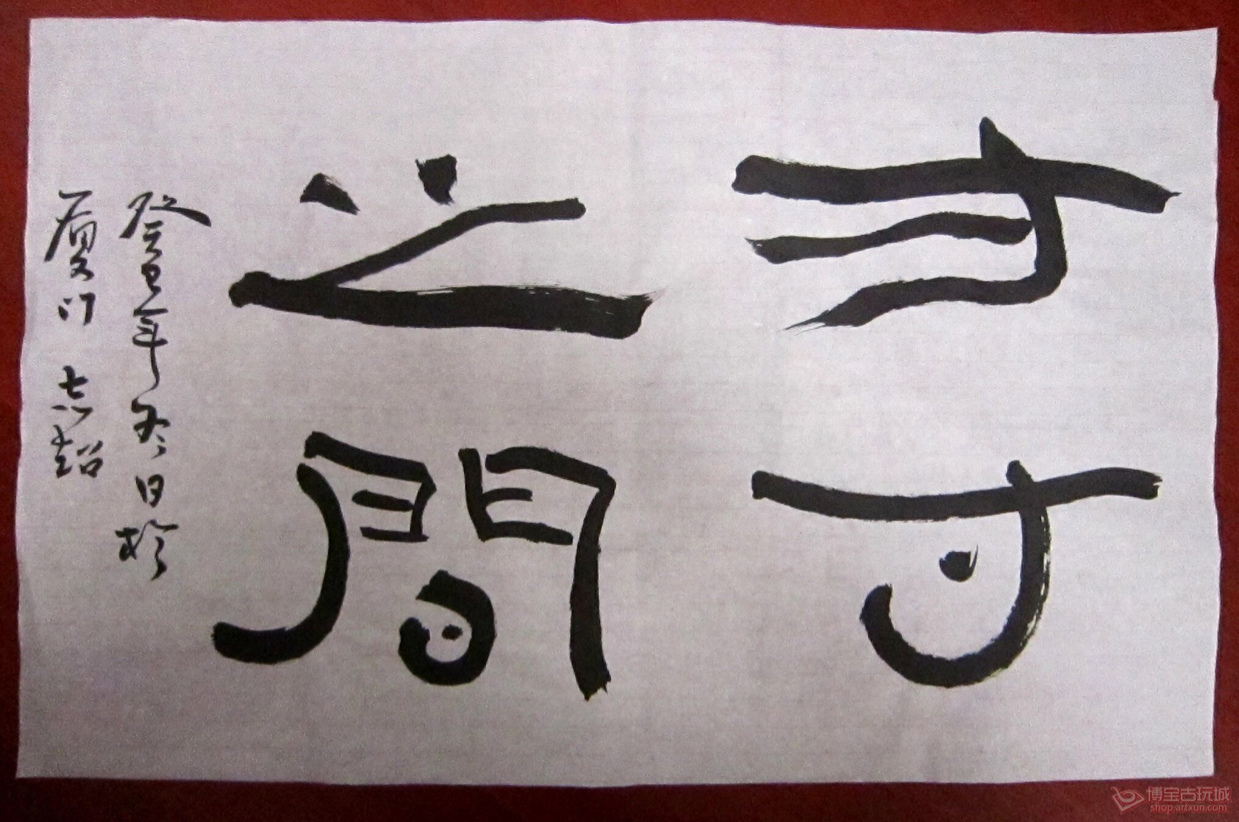 方寸
之間
癸巳年冬日於
厦门 志超
博宝古玩城
shop.artxun.com